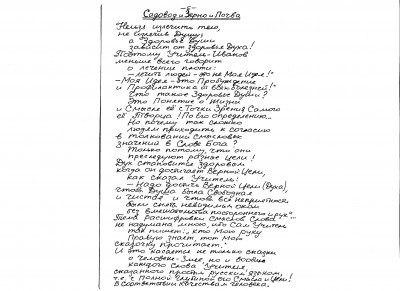 Садовод и Зерно и Почва
Нельзя излечить тело,
не излечив Душу,
а Здоровье Души
зависит от здоровья Духа!
Поэтому Учитель-Иванов
меньше всего говорит
о лечение плоти:
— лечить людей – это не Моя Идея!"
— Моя Идея – это Пробуждение
и Профилактика от всех болезней!"
Что такое Здоровье Души?
Это Понятие о Жизни
и Смысле её с Точки Зрения Самого
её Творца! По его определению...
Но почему так сложно
людям приходить к согласию
в толковании смысловых
значений в Слове Бога?
Только потому, что они
преследуют разные цели!
Дух становится Здоровым
когда он достигает Верной Цели,
как сказал Учитель:
— Надо достичь Верной Цели (Духа),
чтобы Душа была Свободная
и чистая и чтобы все неприятности
были сняты невидимым оком
без вмешательства постороннего рук"...
расшифровки Смыслов Слова
не надумана мною, ибо Сам Учитель
так пишет: „кто Мою руку
Правую знает, тот Мою
сказочку прочитает."
И это касается не только сказки
о Человеке-Змее, но и вообще
каждого слова Учителя,
сказанного простым русским языком,
т.е. с полной глубиной его Смысла и Цели!
В соответствии качествам человека.